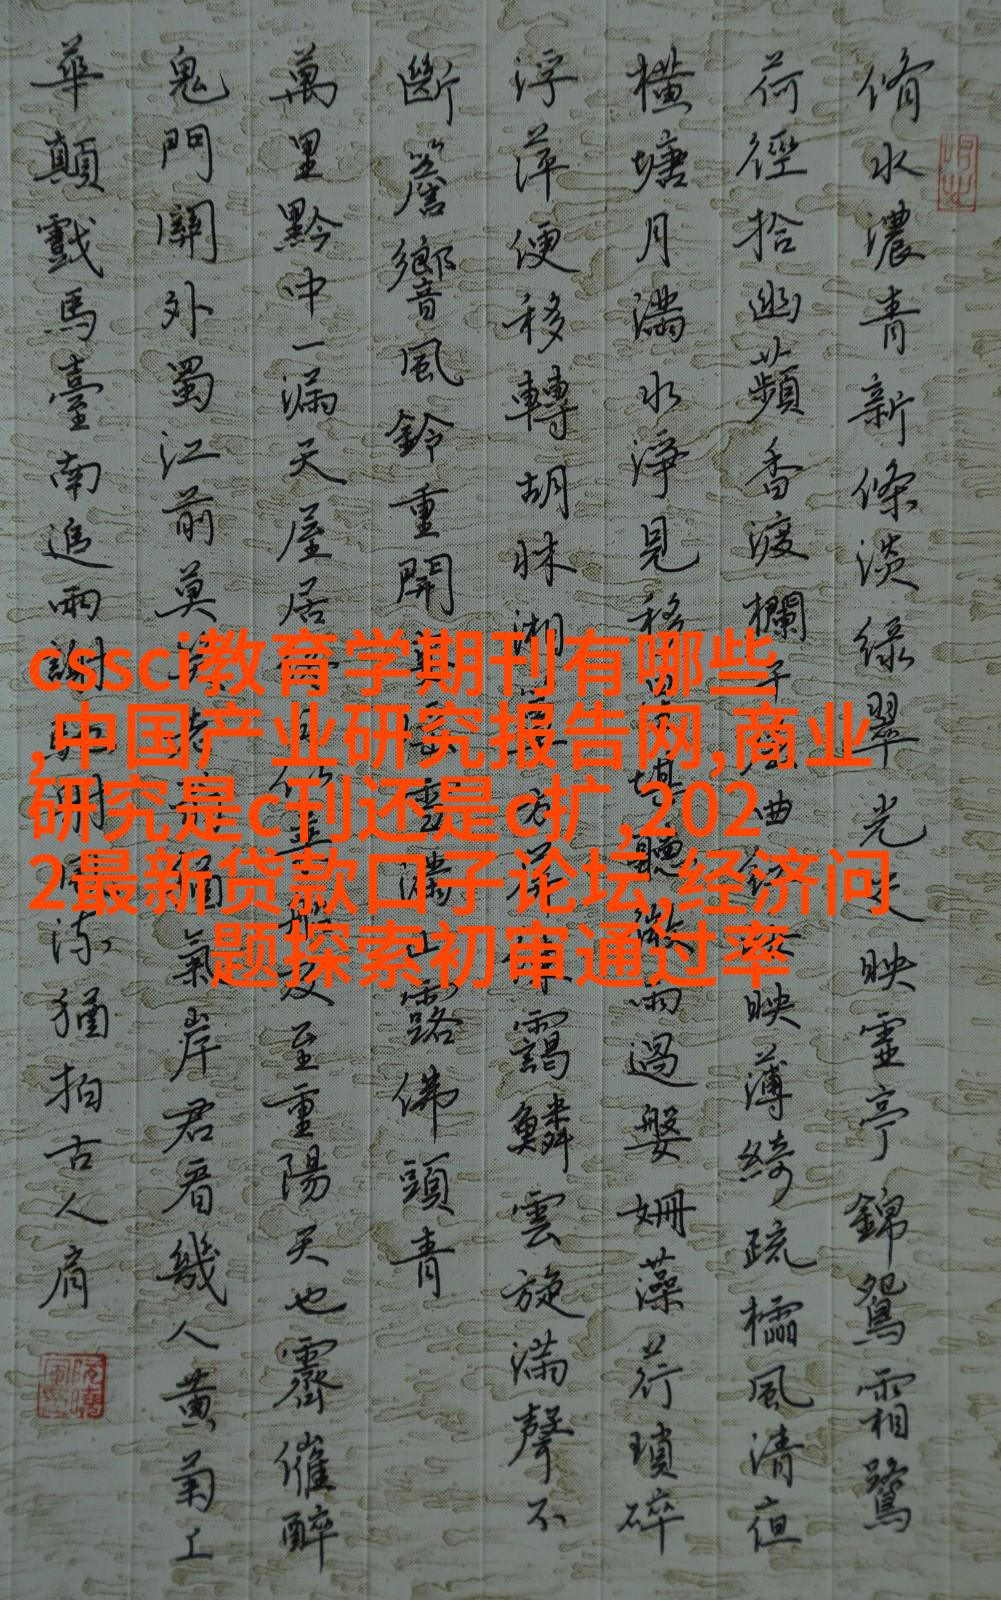 脩水濃青新條淡綠翠光交映虛亭錦鴛霜鷺
荷徑拾幽蘋香渡欄干屈曲紅映薄綺疏櫺風清
橫塘月滿水淨見移星堪聽微雨過媻姍藻荇瑣碎
浮萍便移轉胡牀湘簟方屏練靄鱗雲旋滿聲不
斷簷響風鈴重開宴雪滿山露佛頭青
萬里黔中一漏天屋居日似船及至重陽天也霽催醉
鬼門關外蜀江前莫笑翁氣岸君看幾人黃菊上
華顛戲馬臺南追兩謝馳射風流猶拍古人肩
cssci教育学期刊有哪些
,中国产业研究报告网,商业
研究是c刊还是c扩,202
2最新贷款口子论坛,经济问
题探索初审通过率